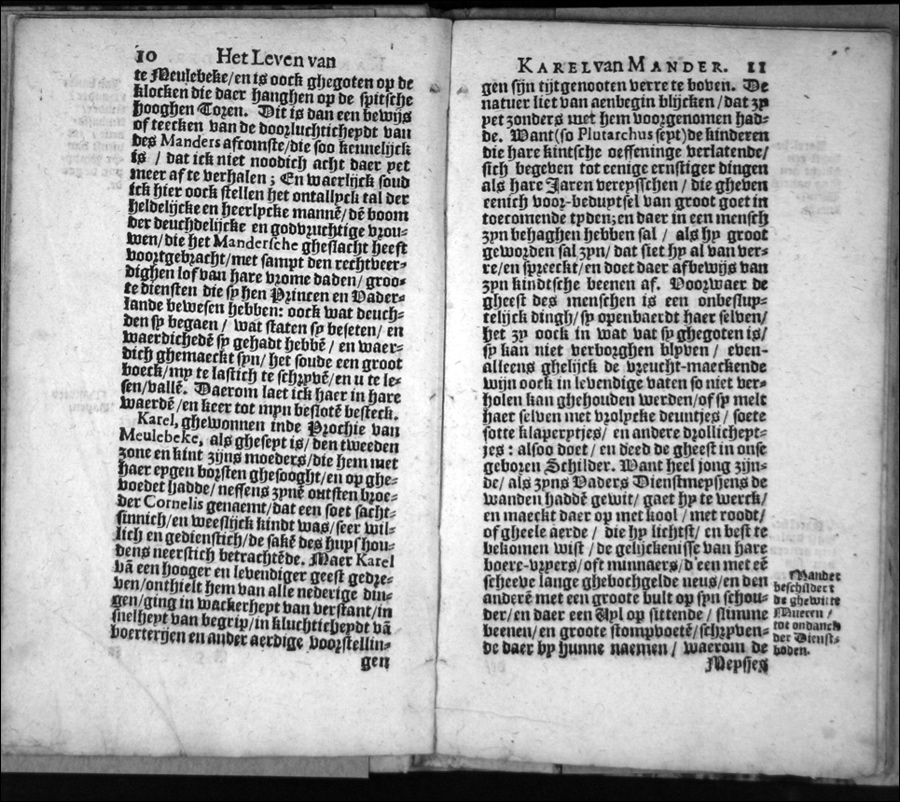 10 Het Leven van
te Meulebeke/en is oock ghegoten op de
klocken die daer hanghen op de spitsche
hooghen Toren. Dit is dan een bewijs
of teecken van de doorluchticheydt van
des Manders afcomste/die soo kennelijck
is / dat ick niet noodich acht daer yet
meer af te verhalen ; En waerlijck soud
ick hier oock stellen het ontallyck tal der
heldelijcke en heerlycke mannē/dē boom
der deuchdelijcke en godvruchtige vrou-
wen/die het Mandersche gheslacht heeft
voortgebracht/met sampt den rechtveer-
dighen lof van hare vrome daden/groo-
te diensten die sy hen Princen en Vader-
lande bewesen hebben: oock wat deuch-
den sy begaen / wat staten sy beseten/ en
waerdichedē sy gehadt hebbē / en waer-
dich ghemaeckt syn/ het soude een groot
boeck/my te lastich te schryvē/en u te le-
sen/vallē. Daerom laet ick haer in hare
waerdē/en keer tot myn beslotē besteck.
Karel, ghewonnen inde Prochie van
Meulebeke, als gheseyt is/ den tweeden
zone en kint zijns moeders/die hem met
haer eygen borsten ghesooght/en op ghe-
voedet hadde/ neffens zynē outsten broe-
der Cornelis genaemt/dat een soet sacht-
sinnich/en weeslijck kindt was/seer wil-
lich en gedienstich/de sakē des huys hou-
dens neerstich betrachtēde. Maer Karel
vā een hooger en levendiger geest gedre-
ven/onthielt hem van alle nederige din-
gen/ging in wackerheyt van verstant/in
snelheyt van begrip/in kluchticheydt vā
boerterijen en ander aerdige voorstellin-
gen
KAREL van MANDER. 11
gen sijn tijtgenooten verre te boven. De
natuer liet van aenbegin blijcken/dat zy
yet zonders met hem voorgenomen had-
de. Want(so Plutarchus seyt)de kinderen
die hare kintsche oeffeninge verlatende/
sich begeven tot eenige ernstiger dingen
als hare Jaren vereysschen / die gheven
eenich voor-beduytsel van groot goet in
toecomende tyden; en daer in een mensch
zyn behaghen hebben sal / als hy groot
geworden sal zyn/ dat siet hy al van ver-
re/en spreeckt/en doet daer afbewijs van
zyn kindtsche beenen af. Voorwaer de
gheest des menschen is een onbesluy-
telijck dingh/ sy openbaerdt haer selven/
het zy oock in wat vat sy ghegoten is/
sy kan niet verborghen blyven / even-
alleens ghelijck de vreucht-maeckende
wijn oock in levendige vaten so niet ver-
holen kan ghehouden werden/of sy melt
haer selven met vrolycke deuntjes / soete
sotte klaperytjes/ en andere drollicheyt-
jes : alsoo doet / en deed de gheest in onse
geboren Schilder. Want heel jong zijn-
de/ als zyns Vaders Dienstmeysjens de
wanden haddē gewit/ gaet hy te werck/
en maeckt daer op met kool / met roodt/
of gheele aerde / die hy lichtst/ en best te
bekomen wist / de gelijckenisse van hare
boere-vryers/ oft minnaers/ d'een met eē
scheeve lange ghebochgelde neus/en den
anderē met een groote bult op syn schou-
der/en daer een Uyl op sittende / slimme
beenen/ en groote stompvoetē/schryven-
de daer by hunne naemen / waerom de
Meysjes
Mander
beschildert
de ghewitte
Mueren /
tot ondanck
der Dienst-
boden.